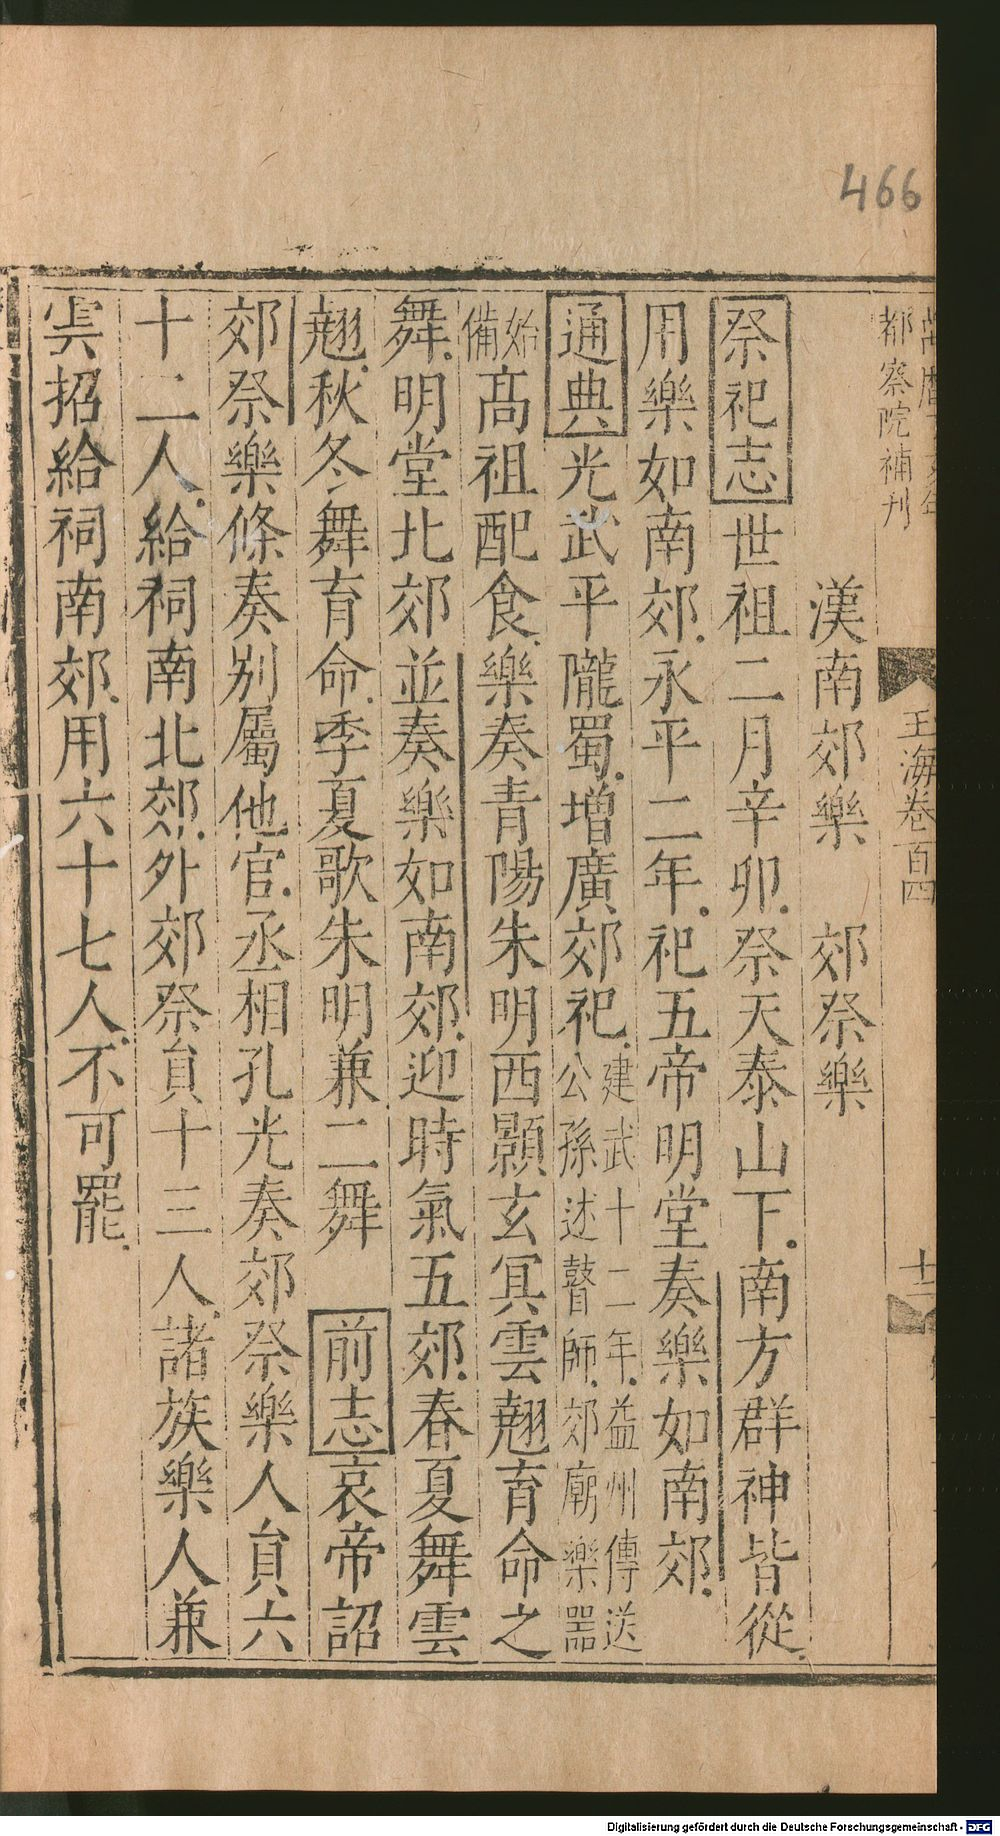 466
都察院補刊
玉海卷百四
漢南郊樂 郊祭樂
祭祀志世祖二月辛卯祭天泰山下南方群神皆從
用樂如南郊永平二年祀五帝明堂奏樂如南郊
通典光武平隴蜀增廣郊祀建武十二年益州傳送公孫述瞽師郊廟樂器
始備高祖配食樂奏青陽朱明西顥玄冥雲翹育命之
舞明堂北郊並奏樂如南郊迎時氣五郊春夏舞雲
翹秋冬舞育命季夏歌朱明兼二舞 前志哀帝詔
郊祭樂條奏別屬他官丞相孔光奏郊祭樂人員六
十二人給祠南北郊外郊祭員十三人諸族樂人兼
雲招給祠南郊用六十七人不可罷
Digitalisierung gefördert durch die Deutsche Forschungsgemeinschaft - DFG